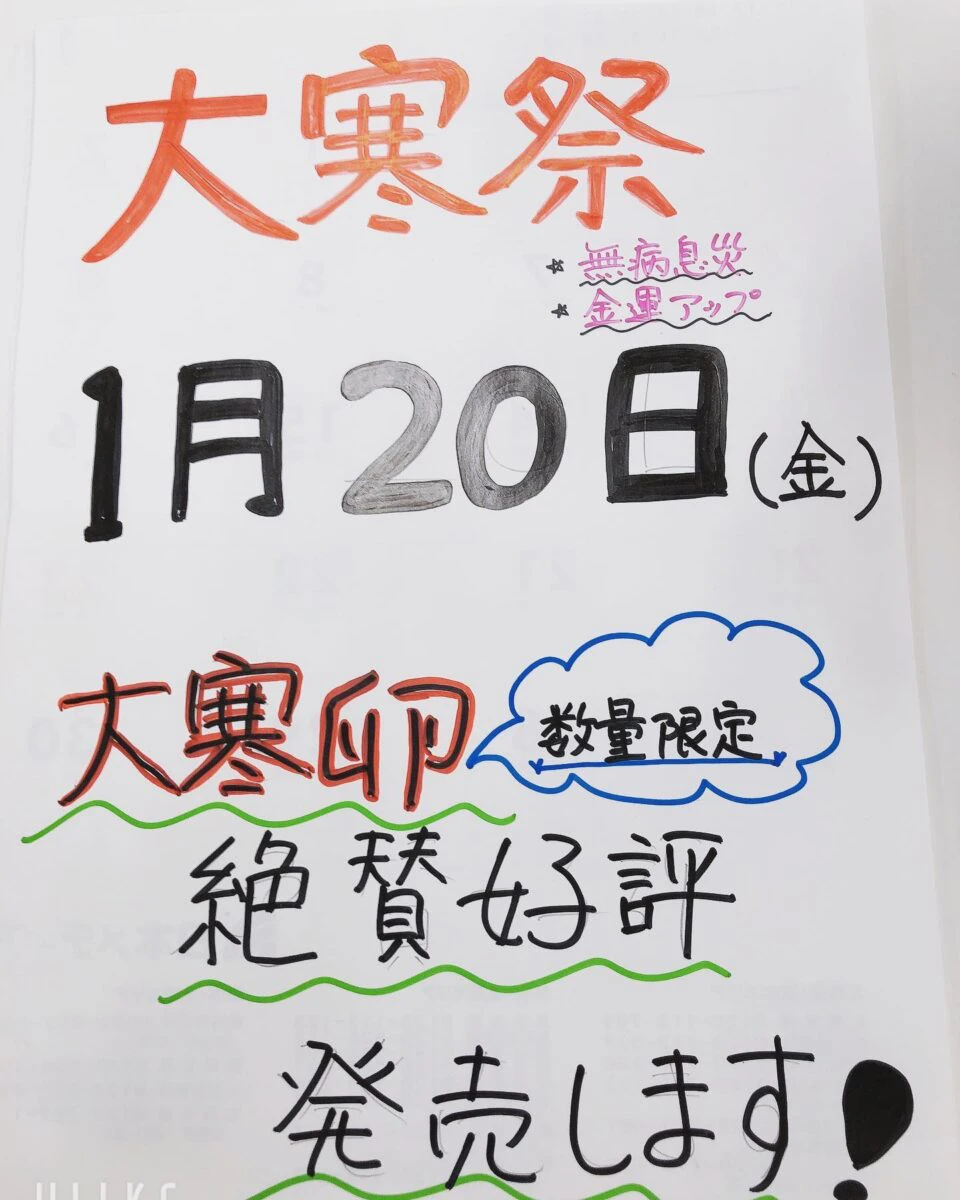 大寒祭
☆ 無病息災
☆ 金運アップ
1月20日(金)
大寒卵
数量限定
絶賛好評
発売します!